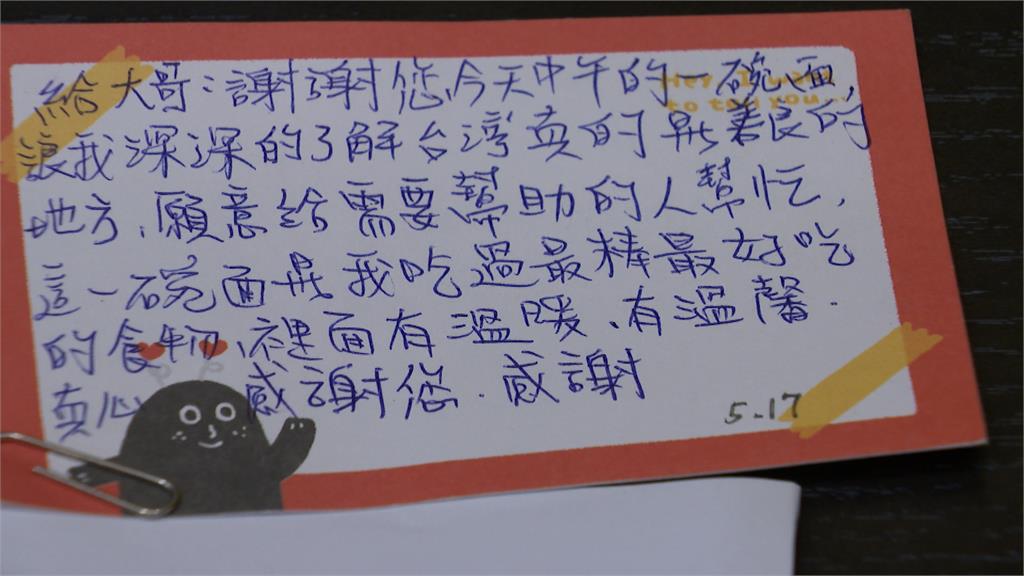 給大哥:謝謝您今天中午的一碗面,
讓我深深的了解台灣真的是善良的
地方、願意給需要幫助的人幫忙,
這一碗面是我吃過最棒最好吃
的食物、裡面有溫暖、有溫馨.
真心 感謝您.感謝
5-17